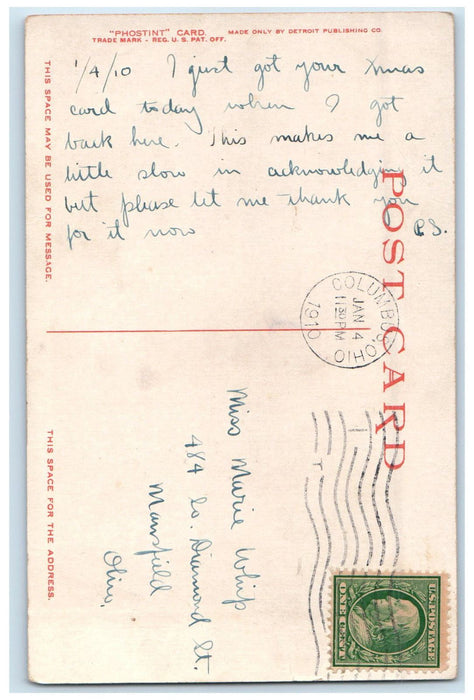 "PHOSTINT" CARD.
TRADE MARK - REG. U. S. PAT. OFF.
MADE ONLY BY DETROIT PUBLISHING CO.
THIS SPACE MAY BE USED FOR MESSAGE.
1/4/10 I just got your Xmas
card today when I got
back here. This makes me a
little slow in acknowledging it
but please let me thank you
for it now P.S.
POST CARD
COLUMBUS, OHIO
JAN 4
11 30 PM
1910
THIS SPACE FOR THE ADDRESS.
Miss Marie Whip
484 So. Diamond St.
Mansfield
Ohio.
U.S. POSTAGE
ONE CENT